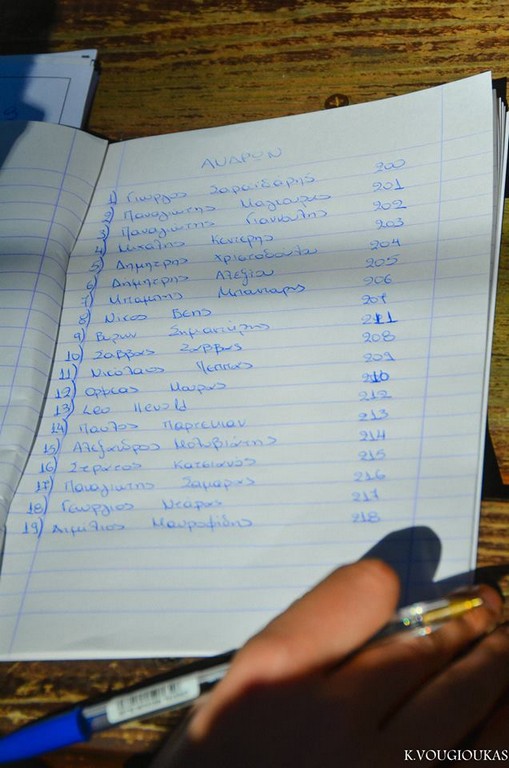 ΑΝΔΡΩΝ
1) Γιώργος Σαρωιδάρης 200
2) Παναγιώτης Μαγκουρας 201
3) Παναγιώτης Γιαννουλης 202
4) Μιχαλης Κεντερης 203
5) Δημητρης Χριστοδουλου 204
6) Δημητρης Αλεξιου 205
7) Μπαμπης Μπανταρς 206
8) Νικος Βεης 207
9) Βυρων Σημαντηρης 211
10) Σαββας Σαββας 208
11) Νικόλαος Παππας 209
12) Ορφεας Μαυρος 210
13) Leo 212
14) Παυλος Παρτενιαν 213
15) Αλεξανδρος Μολυβιατης 214
16) Στρατος Κατσιανος 215
17) Παναγιωτης Σαμαρας 216
18) Γεωργιος Νεαρχος 217
19) Αιμιλιος Μαυροφιδης 218
K.VOUGIOUKAS